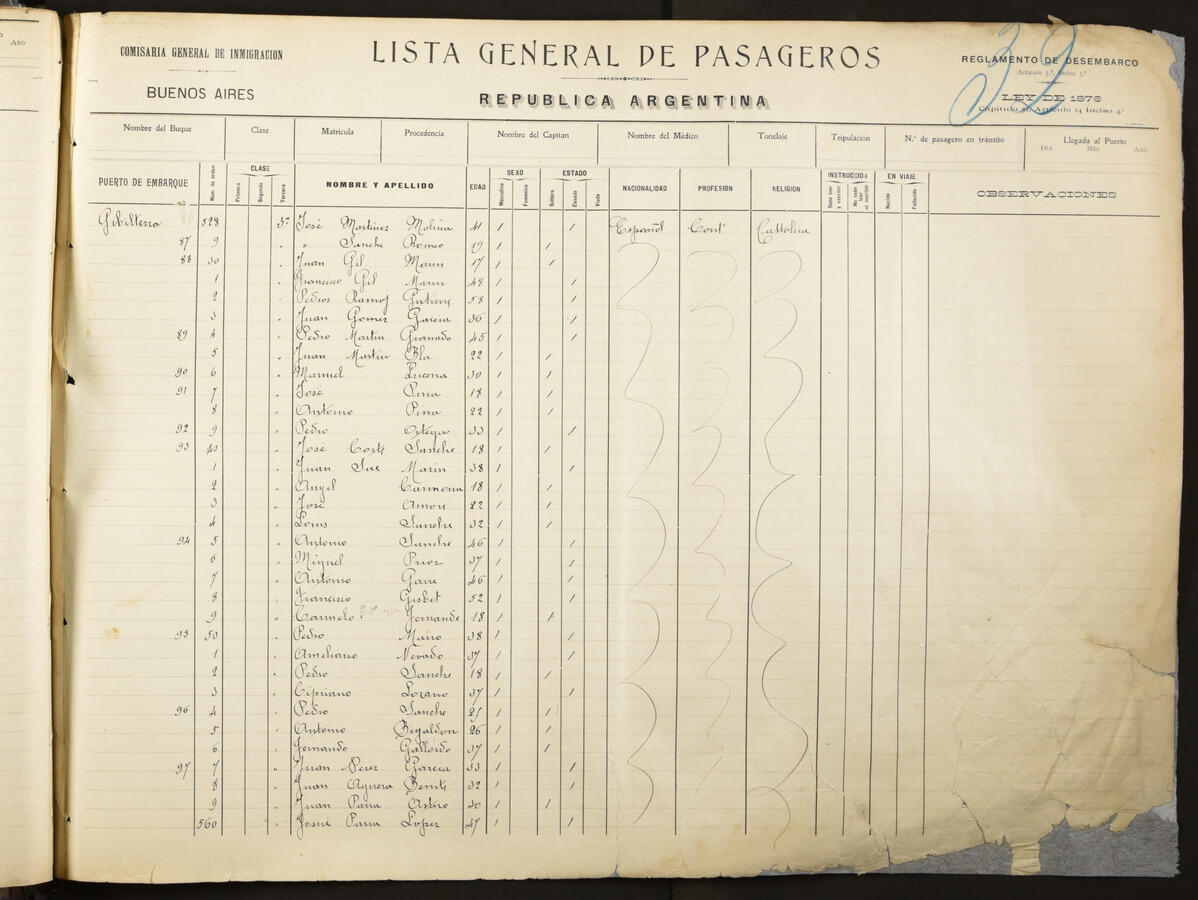 Año
COMISARIA GENERAL DE INMIGRACION
BUENOS AIRES
LISTA GENERAL DE PASAGEROS
REPUBLICA ARGENTINA
39
REGLAMENTO DE DESEMBARCO
Artículo 5º, Inciso 3º
LEY DE 1876
Artículo 14 Inciso 4º
Nombre del Buque Clase Matricula Procedencia Nombre del Capitan Nombre del Médico Tonelaje Tripulacion N.º de pasagero en tránsito Llegada al Puerto
Dia Mes Año
PUERTO DE EMBARQUE Núm. de órden CLASE Primera Segunda Tercera NOMBRE Y APELLIDO EDAD SEXO Masculino Femenino ESTADO Soltero Casado Viudo NACIONALIDAD PROFESION RELIGION INSTRUCCION Sabe leer y escribir No sabe leer ni escribir EN VIAJE Nacido Fallecido OBSERVACIONES
Gibilterra 528 3ª José Martinez Molina 41 / / Español Cont Cattolica
87 9 " " Sanche Romeo 19 / /
88 30 " Juan Gil Marin 17 / /
1 " Francisco Gil Marin 48 / /
2 " Pedros Ramos Gutierre 58 / /
3 " Juan Gomez Garcia 36 / /
89 4 " Pedro Martin Granado 45 / /
5 " Juan Martin Bla 22 / /
90 6 " Manuel Lucena 30 / /
91 7 " José Pina 18 / /
8 " Antonio Pina 22 / /
92 9 " Pedro Ortega 33 / /
93 40 " José Corte Sanche 18 / /
1 " Juan Marin 38 / /
2 " Angel Carmona 18 / /
3 " José Amor 22 / /
4 " Sanche 32 / /
94 5 " Antonio Sanche 46 / /
6 " Miguel Prior 37 / /
7 " Antonio Garre 46 / /
8 " Francisco Gisbet 52 / /
9 " Carmelo Fernande 18 / /
95 50 " Pedro Mairo 38 / /
1 " Ameliano Nevado 37 / /
2 " Pedro Sanche 18 / /
3 " Cipriano Lozano 37 / /
96 4 " Pedro Sanche 21 / /
5 " Antonio Bigaldon 26 / /
6 " Fernando Gallordo 37 / /
97 7 " Juan Perez Garcia 33 / /
8 " Juan Aguera Benite 32 / /
9 " Juan Parra Astero 40 / /
560 " Parra Lopez 47 / /